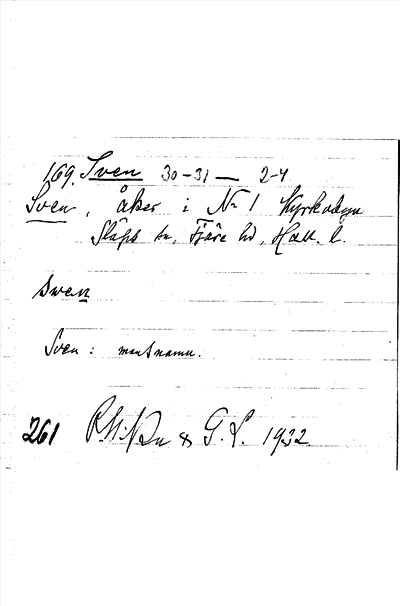 169. Sven 30-31 — 2-4
Sven, åker i Nr 1 Kyrkobyn
Släps sn, Fjäre hd, Hall. l.
swen
Sven : mansnamn.
261 & G. L. 1932